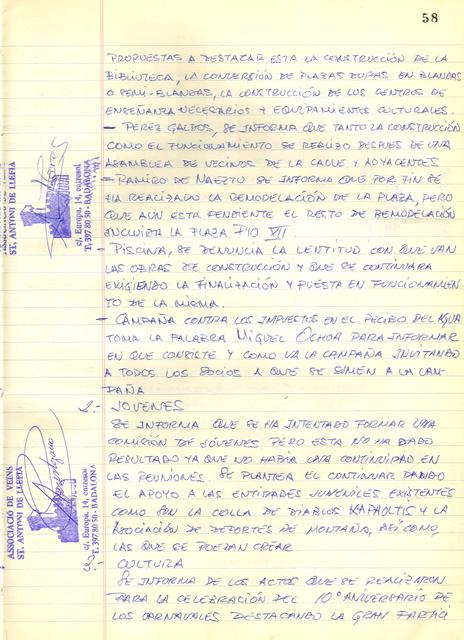 58
PROPUESTAS A DESTACAR ESTA LA CONSTRUCCIÓN DE LA
BIBLIOTECA, LA CONVERSIÓN DE PLAZAS DURAS EN BLANDAS
O SEMI-BLANDAS, LA CONSTRUCCIÓN DE LOS CENTROS DE
ENSEÑANZA NECESARIOS Y EQUIPAMIENTOS CULTURALES.
- PEREZ GALDOS, SE INFORMA QUE TANTO LA CONSTRUCCIÓN
COMO EL FUNCIONAMIENTO SE REALIZO DESPUES DE UNA
ASAMBLEA DE VECINOS DE LA CALLE Y ADYACENTES
- RAMIRO DE MAEZTU SE INFORMA QUE POR FIN SE
HA REALIZADO LA REMODELACIÓN DE LA PLAZA, PERO
QUE AUN ESTA PENDIENTE EL RESTO DE REMODELACIÓN
INCLUIRTA LA PLAZA PIO XII
- PISCINA, SE DENUNCIA LA LENTITUD CON QUE VAN
LAS OBRAS DE CONSTRUCCIÓN Y QUE SE CONTINUARA
EXIGIENDO LA FINALIZACIÓN Y PUESTA EN FUNCIONAMIEN
TO DE LA MISMA.
- CAMPAÑA CONTRA LOS IMPUESTOS EN EL RECIBO DEL AGUA
TOMA LA PALABRA MIGUEL OCHOA PARA INFORMAR
EN QUE CONSISTE Y COMO VA LA CAMPAÑA INVITANDO
A TODOS LOS SOCIOS A QUE SE SUMEN A LA CAM-
PAÑA
2.- JOVENES
SE INFORMA QUE SE HA INTENTADO FORMAR UNA
COMISIÓN DE JÓVENES PERO ESTA NO HA DADO
RESULTADO YA QUE NO HABIA UNA CONTINUIDAD EN
LAS REUNIONES. SE PLANTEA EL CONTINUAR DANDO
EL APOYO A LAS ENTIDADES JUVENILES EXISTENTES
COMO SON LA COLLA DE DIABLOS KAPAOLTIS Y LA
ASOCIACIÓN DE DEPORTES DE MONTAÑA, ASÍ COMO,
LAS QUE SE PUEDAN CREAR
CULTURA
SE INFORMA DE LOS ACTOS QUE SE REALIZARON
PARA LA CELEBRACIÓN DEL 10º ANIVERSARIO DE
LOS CARNAVALES DESTACANDO LA GRAN PARTICI
ASSOCIACIÓ DE VEÏNS
ST. ANTONI DE LLEFIA
c/. Europa, 14, entresol
T. 397 80 50 - BADALONA
ASSOCIACIÓ DE VEÏNS
ST. ANTONI DE LLEFIA
c/. Europa, 14, entresol
T. 397 80 50 - BADALONA